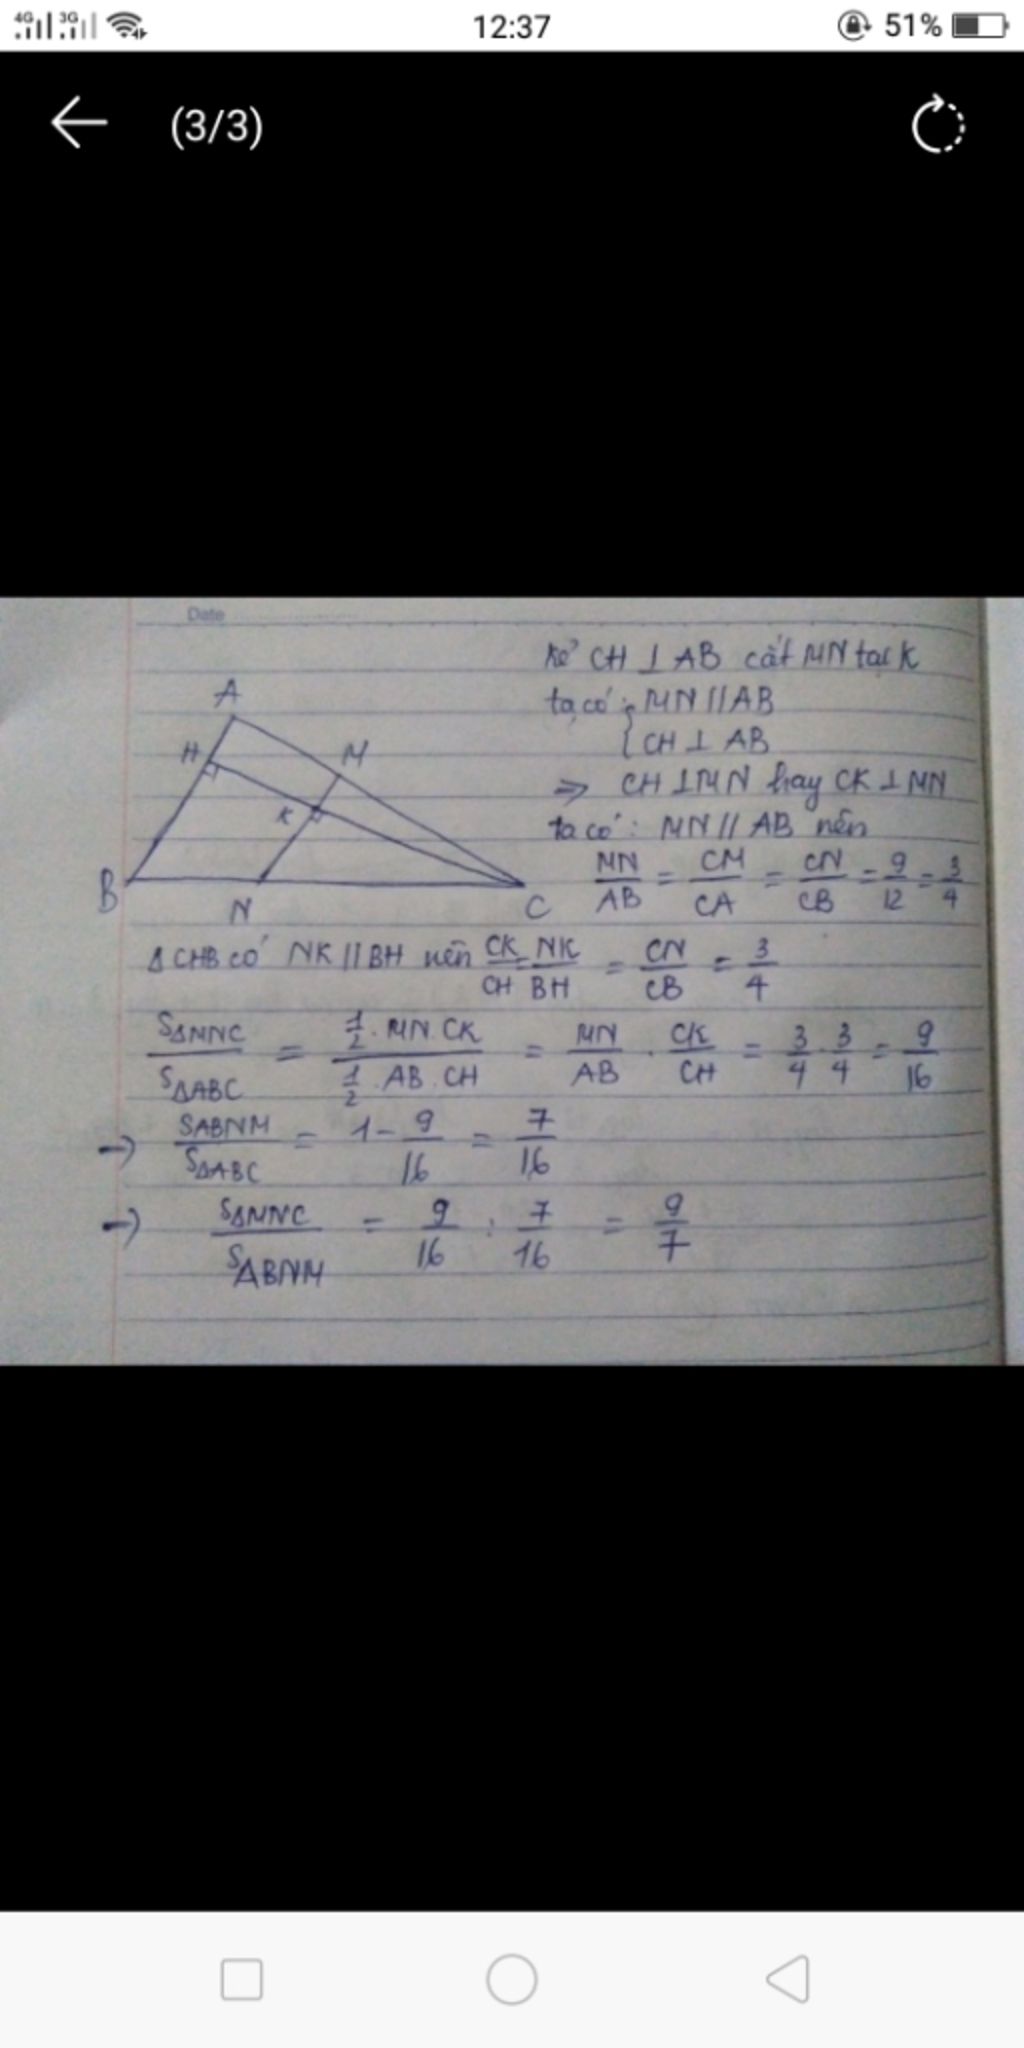 4G 3G 12:37 51%
(3/3)
Date
Kẻ CH ⊥ AB cắt MN tại K
ta có: { MN // AB
CH ⊥ AB
=> CH ⊥ MN hay CK ⊥ MN
ta có: MN // AB nên
MN/AB = CM/CA = CN/CB = 9/12 = 3/4
A
H
M
K
B
N
C
ΔCHB có NK // BH nên CK/CH = NK/BH = CN/CB = 3/4
SΔMNC/SΔABC = (1/2 . MN . CK)/(1/2 . AB . CH) = MN/AB . CK/CH = 3/4 . 3/4 = 9/16
→) SABNM/SΔABC = 1 - 9/16 = 7/16
→) SΔMNC/SABNM = 9/16 : 7/16 = 9/7